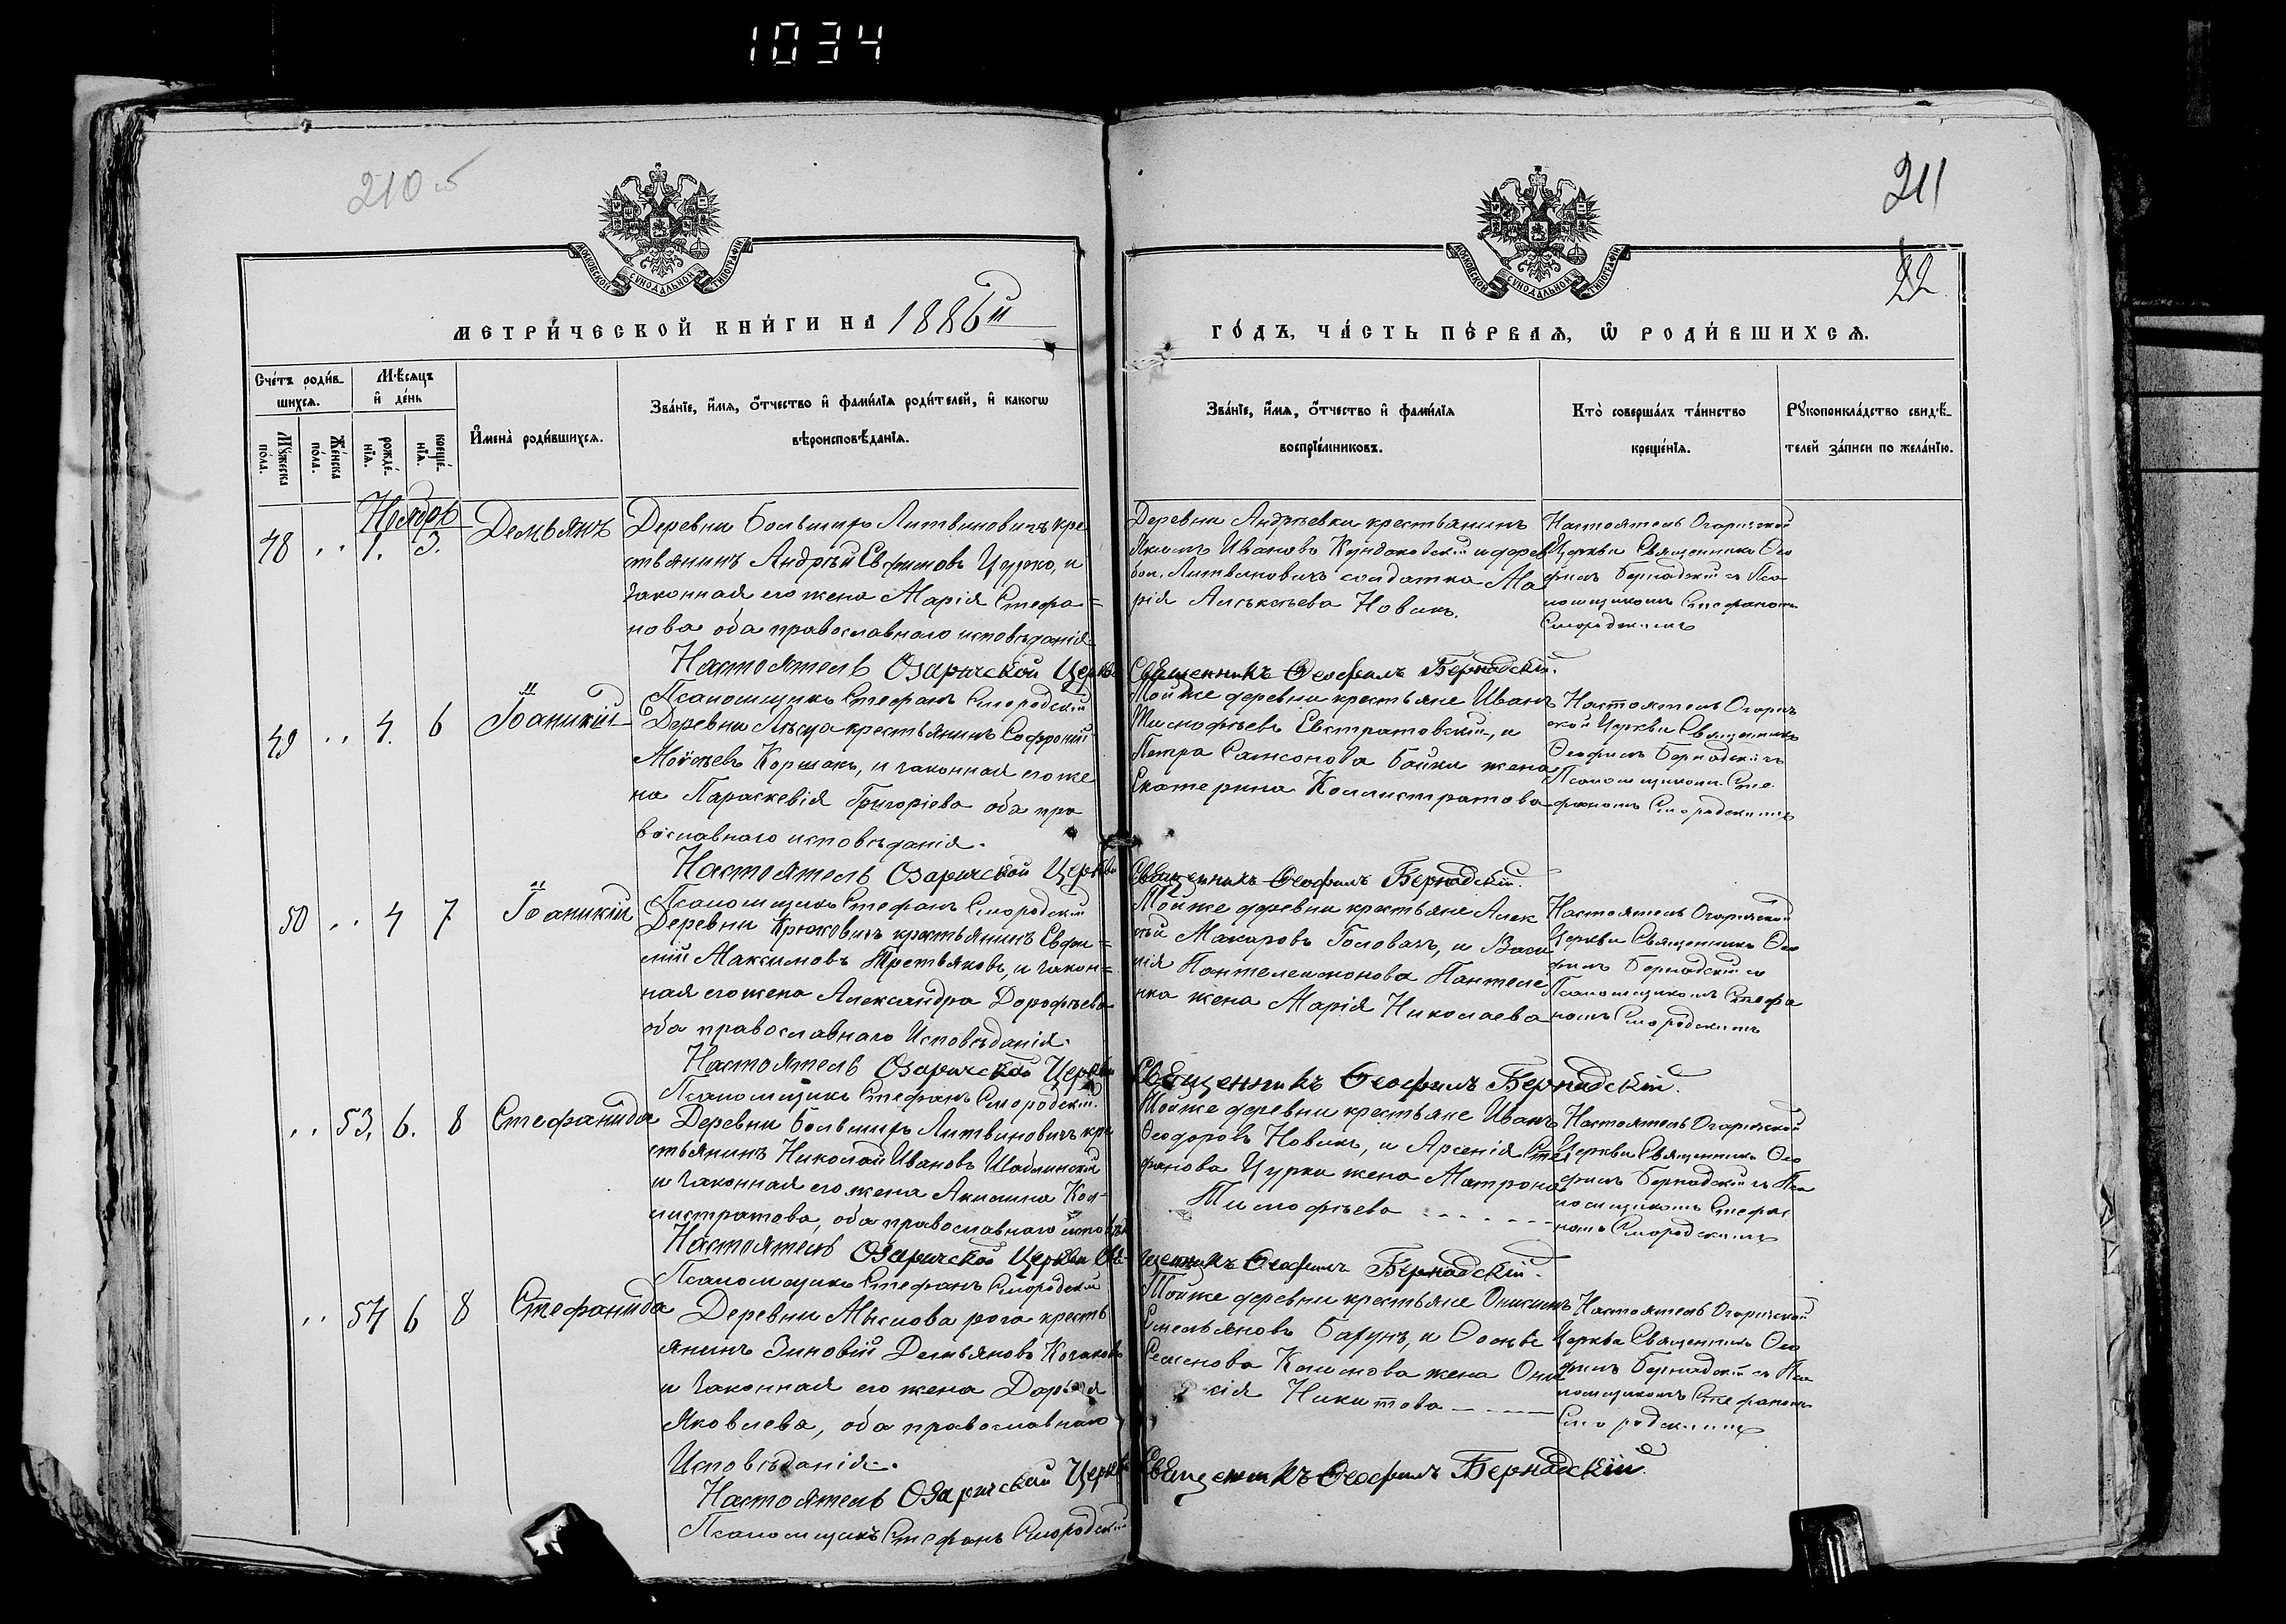 1034
210 об
211
22
МОСКОВСКОЙ СѴНОДАЛЬНОЙ ТИПОГРАФІИ
МОСКОВСКОЙ СѴНОДАЛЬНОЙ ТИПОГРАФІИ
МЕТРИ́ЧЕСКОЙ КНИ́ГИ НА 1886й
ГО́ДЪ, ЧА́СТЬ ПЕ́РВАѦ, Ѡ РОДИ́ВШИХСѦ.
Сче́тъ роди́в-
шихсѧ.
Мѣ́сѧцъ
и де́нь
Мꙋ́жеска
по́ла.
Же́нска
по́ла.
рожде́-
нїѧ.
креще́-
нїѧ.
Имена̀ роди́вшихсѧ.
Зва́нїе, и́мѧ, о́тчество и фами́лїѧ роди́телей, и какогѡ
вѣроисповѣ́данїѧ.
Зва́нїе, и́мѧ, о́тчество и фами́лїѧ
воспрїе́мниковъ.
Кто̀ соверша́лъ та́инство
креще́нїѧ.
Рꙋкоприкла́дство свидѣ́-
телей за́писи по жела́нїю.
Ноябрь
48 ,, 1. 3. Демьянъ
Деревни Большихъ Литвиновичъ кре
стьянинъ Андрѣй Евфимовъ Цурко, и
законная его жена Марія Стефа=
нова оба православнаго исповѣданія
Деревни Андреевки крестьянинъ
Яковъ Ивановъ Кундаковскій и дерев
бол. Литвиновичъ солдатка Ма
рія Алексѣева Новикъ.
Настоятель Озаричской
Церкви Священникъ Ѳео
филъ Бернадскій съ Пса
ломщикомъ Стефаномъ
Смородскимъ
Настоятель Озаричской Церкви Священникъ Ѳеофилъ Бернадскій.
Псаломщикъ Стефанъ Смородскій
49 ,, 4. 6 Іоаникій
Деревни Лѣсца крестьянинъ Софроній
Моѵсеевъ Коршакъ, и законная его же
на Параскевія Григоріева оба пра
вославнаго исповѣданія.
Тойже деревни крестьяне Иванъ
Тимофѣевъ Евстратовскій, и
Петра Самсонова Байки жена
Екатерина Коллистратова
Настоятель Озарич
ской Церкви Священникъ
Ѳеофилъ Бернадскій съ
Псаломщикомъ Сте
фаномъ Смородскимъ
Настоятель Озаричской Церкви Священникъ Ѳеофилъ Бернадскій.
Псаломщикъ Стефанъ Смородскій
50 ,, 4 7 Іоаникій
Деревни Крюковичъ крестьянинъ Евфи=
мій Максимовъ Третьяковъ, и закон=
ная его жена Александра Дорофѣева
оба православнаго Исповѣданія.
Тойже деревни крестьяне Алек
сѣй Макаровъ Головачъ, и Васи
лія Пантелеимонова Пантеле
нка жена Марія Николаева
Настоятель Озаричской
Церкви Священникъ Ѳео
филъ Бернадскій съ
Псаломщикомъ Стефа
номъ Смородскимъ
Настоятель Озаричской Церкви Священникъ Ѳеофилъ Бернадскій.
Псаломщикъ Стефанъ Смородскій.
,, 53. 6. 8 Стефанида
Деревни Большихъ Литвиновичъ кре
стьянинъ Николай Ивановъ Шаблинскій
и законная его жена Акилина Кол-
листратова, оба православнаго исповѣд
Тойже деревни крестьяне Иванъ
Ѳеодоровъ Новикъ, и Арсенія Сте
фанова Цурки жена Матрона
Тимофѣева
Настоятель Озаричской
Церкви Священникъ Ѳео
филъ Бернадскій съ Пса
ломщикомъ Стефа
номъ Смородскимъ
Настоятель Озаричской Церкви Священникъ Ѳеофилъ Бернадскій.
Псаломщикъ Стефанъ Смородскій
,, 54 6 8 Стефанида
Деревни Мыслова рога кресть
янинъ Зиновій Демьяновъ Козаковъ
и законная его жена Дарья
Яковлева, оба православнаго
Исповѣданія.
Тойже деревни крестьяне Онисимъ
Емельяновъ Багунъ, и
Семенова Климова жена
Никитова
Настоятель Озаричской
Церкви Священникъ Ѳео
филъ Бернадскій съ Пса
ломщикомъ Стефаномъ
Смородскимъ
Настоятель Озаричской Церкви Священникъ Ѳеофилъ Бернадскій.
Псаломщикъ Стефанъ Смородскій